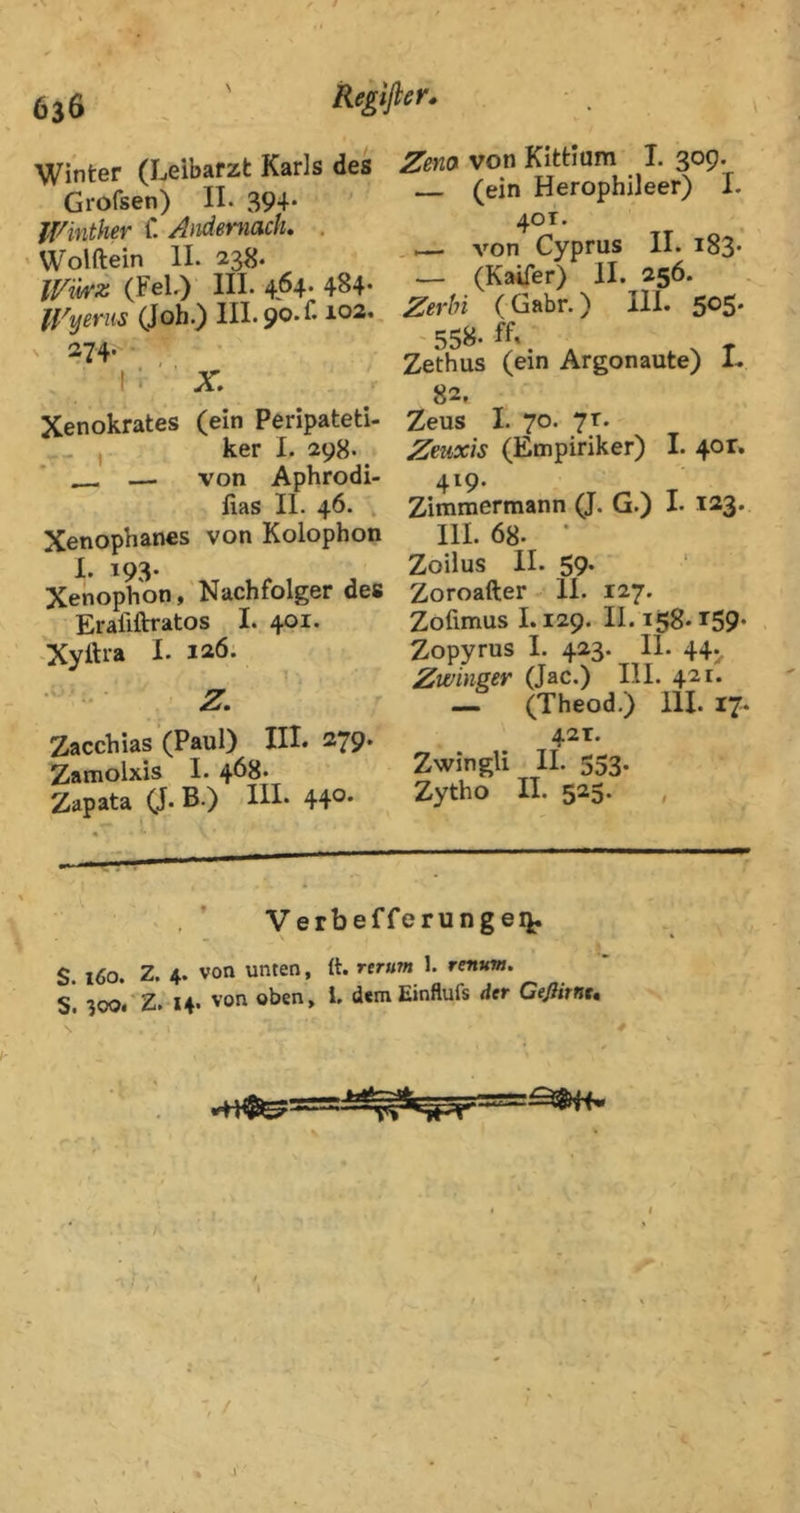 636
Regiſter.
Winter (Leibarzt Karls des
Groſsen) II. 394.
Winther ſ. Andernach.
Wolſtein II. 238.
Würz (Fel.) III. 464. 484.
Wyerus (Joh.) III. 90. f. 102.
274.
X.
Xenokrates (ein Peripateti-
ker I. 298.
— — von Aphrodi-
ſias II. 46.
Xenophanes von Kolophon
I. 193.
Xenophon, Nachfolger des
Eraſiſtratos I. 401.
Xyſtra I. 126.
Z.
Zacchias (Paul) III. 279.
Zamolxis I. 468.
Zapata (J. B.) III. 440.
Zeno von Kittium I. 309.
— (ein Herophileer) I.
401.
— von Cyprus II. 183.
— (Kaiſer) II. 256.
Zerbi (Gabr.) III. 505.
558. ff.
Zethus (ein Argonaute) I.
82.
Zeus I. 70. 71.
Zeuxis (Empiriker) I. 401.
419.
Zimmermann (J. G.) I. 123.
III. 68.
Zoilus II. 59.
Zoroaſter II. 127.
Zoſimus I. 129. II. 158. 159.
Zopyrus I. 423. II. 44.
Zwinger (Jac.) III. 421.
— (Theod.) III. 17.
421.
Zwingli II. 553.
Zytho II. 525.
Verbeſſerungen.
S. 160. Z. 4. von unten, ſt. rerum l. renum.
S. 300. Z. 14. von oben, l. dem Einfluſs der Geſtirne.